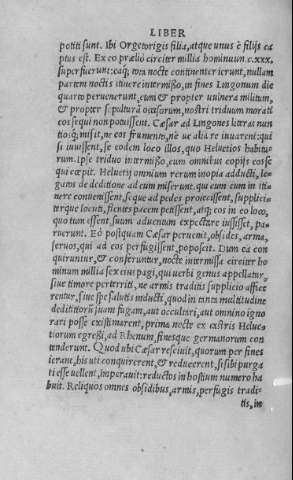 LIBER
potiti sunt. Ibi Orgetorigis filia, atque unus è filijs ca
ptus est. Ex eo prælio circiter millia hominum c.xxx.
superfuerunt: eaq́; tota nocte continenter ierunt, nullam
partem noctis itinere intermisso, in fines Lingonum die
quarto peruenerunt, cum & propter uulnera militum,
& propter sepulturā occisorum, nostri triduum morati
eos sequi non potuissent. Cæsar ad Lingones literas nun
tiosq́; misit, ne eos frumento, né ue alia re iuuarent: qui
si iuuissent, se eodem loco illos, quo Heluetios habitu-
rum. Ipse triduo intermisso, cum omnibus copijs eos se
qui cœpit. Heluetij omnium rerum inopia adducti, le-
gatos de deditione ad eum miserunt. qui cum eum in iti-
nere conuenissent, seque ad pedes proiecissent, supplici-
terque locuti, flentes pacem petissent, atq; eos in eo loco,
quo tum essent, suum aduentum expectare iussisset, pa-
ruerunt. Eò postquam Cæsar peruenit, obsides, arma,
seruos, qui ad eos perfugissent, poposcit. Dum ea con
quiruntur, & conferuntur, nocte intermissa circiter ho
minum millia sex eius pagi, qui uerbi genus appellatur,
siue timore perterriti, ne armis traditis supplicio affice
rentur, siue spe salutis inducti, quod in tanta multitudine
dedititiorū suam fugam, aut occultari, aut omnino igno
rari posse existimarent, prima nocte ex castris Helue-
tiorum egreßi, ad Rhenum, finesque germanorum con
tenderunt. Quod ubi Cæsar resciuit, quorum per fines
ierant, his uti conquirerent, & reducerent, si sibi purga
ti esse uellent, imperauit: reductos in hostium numero ha
buit. Reliquos omnes obsidibus, armis, perfugis tradi-
tis, in